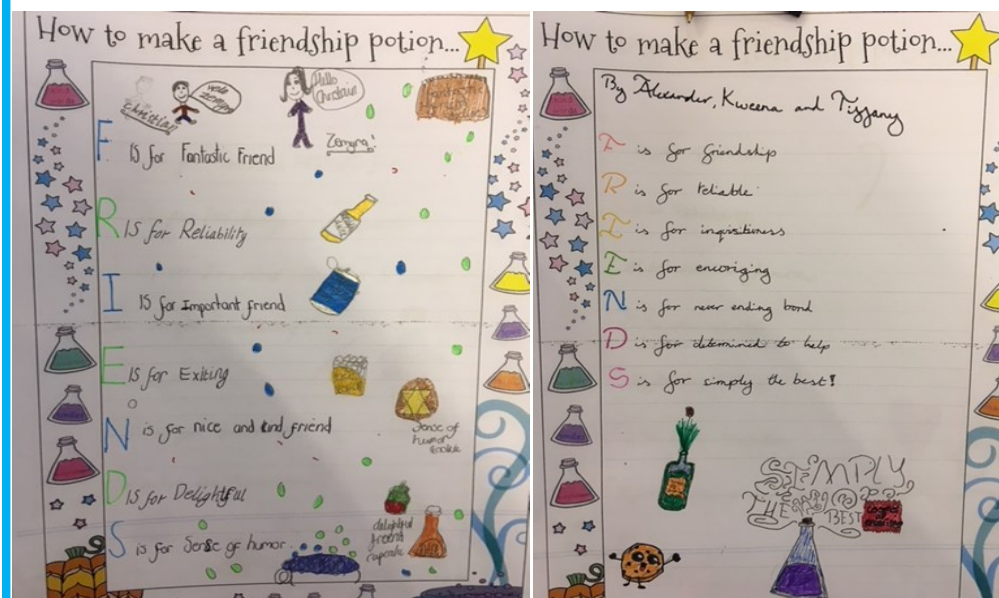 How to make a friendship potion...
Hello
Christian
Zemyra!
F IS for Fantastic Friend
R IS for Reliability
I IS for Important friend
E IS for Exiting
N is for nice and kind friend
Sense of
humor
cookie
D IS for Delightful
delightful
friend
cupcake
S is for Sense of humor
How to make a friendship potion...
By Alexander, Kweena and Tiffany
F is for friendship
R is for reliable
I is for inquisitiness
E is for encoriging
N is for never ending bond
D is for determined to help
S is for simply the best!
SIMPLY
THE
BEST